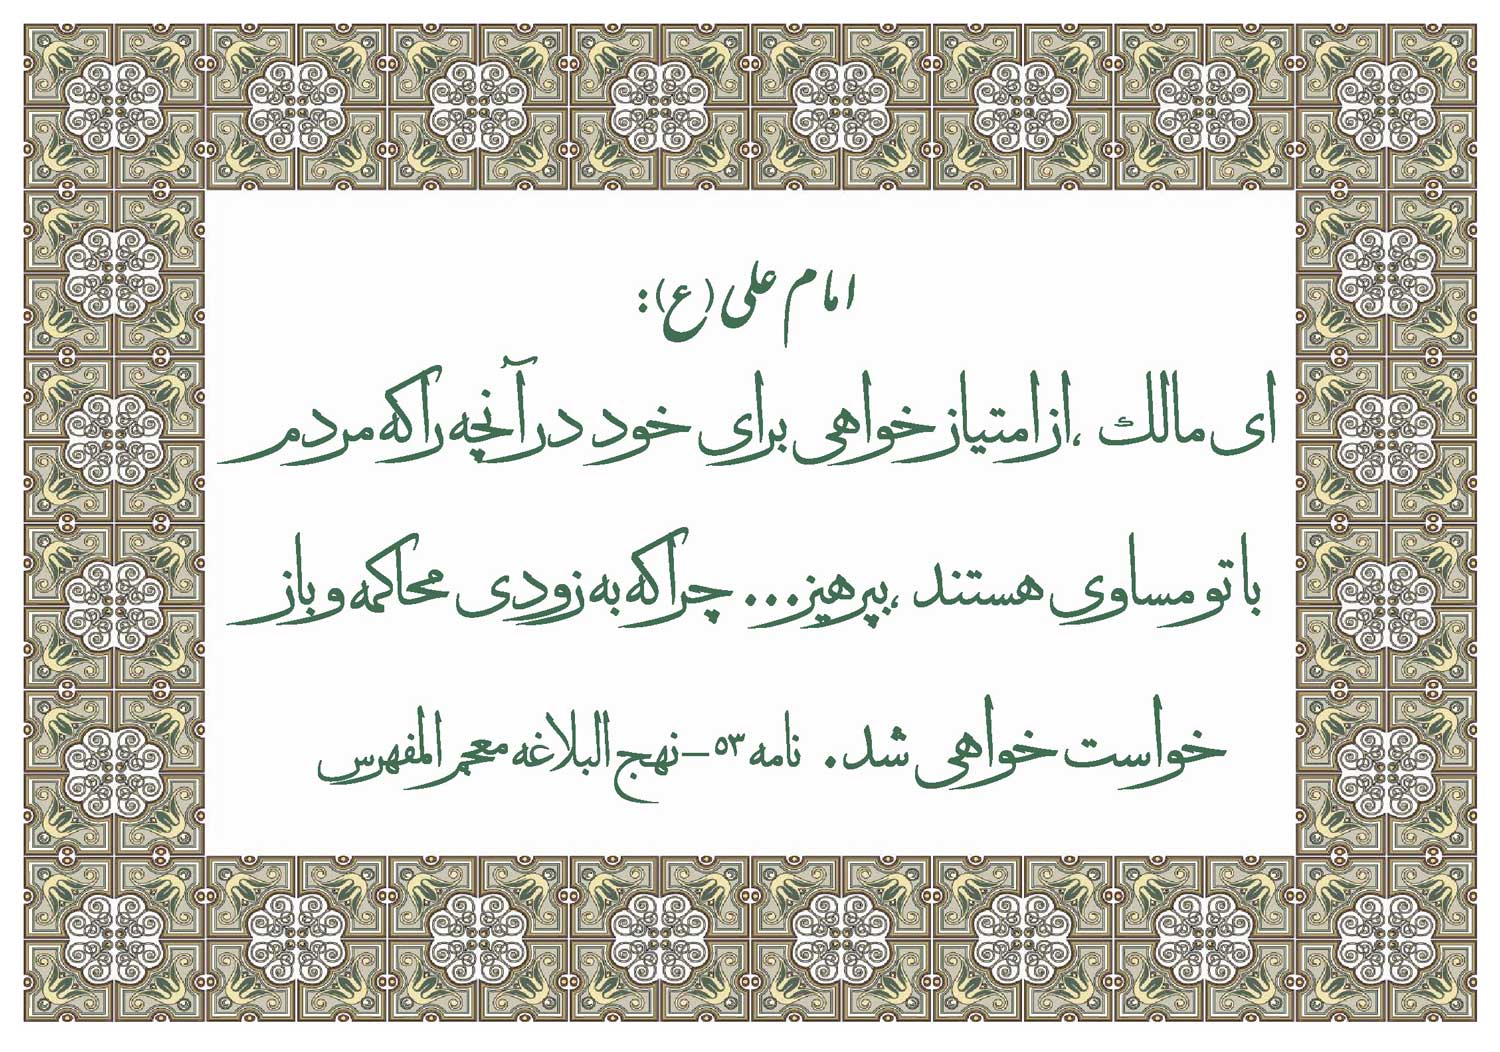 امام علی (ع):
ای مالک ،از امتیاز خواهی برای خود در آنچه را که مردم
با تو مساوی هستند ،بپرهیز... چرا که به زودی محاکمه و باز
خواست خواهی شد. نامه ۵۳–نهج البلاغه معجم المفهرس